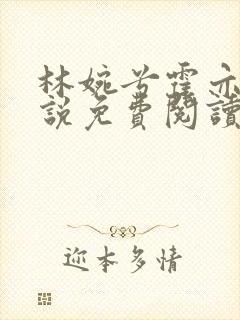 林婉兮霍亦
說免費閱讀
迩本多情